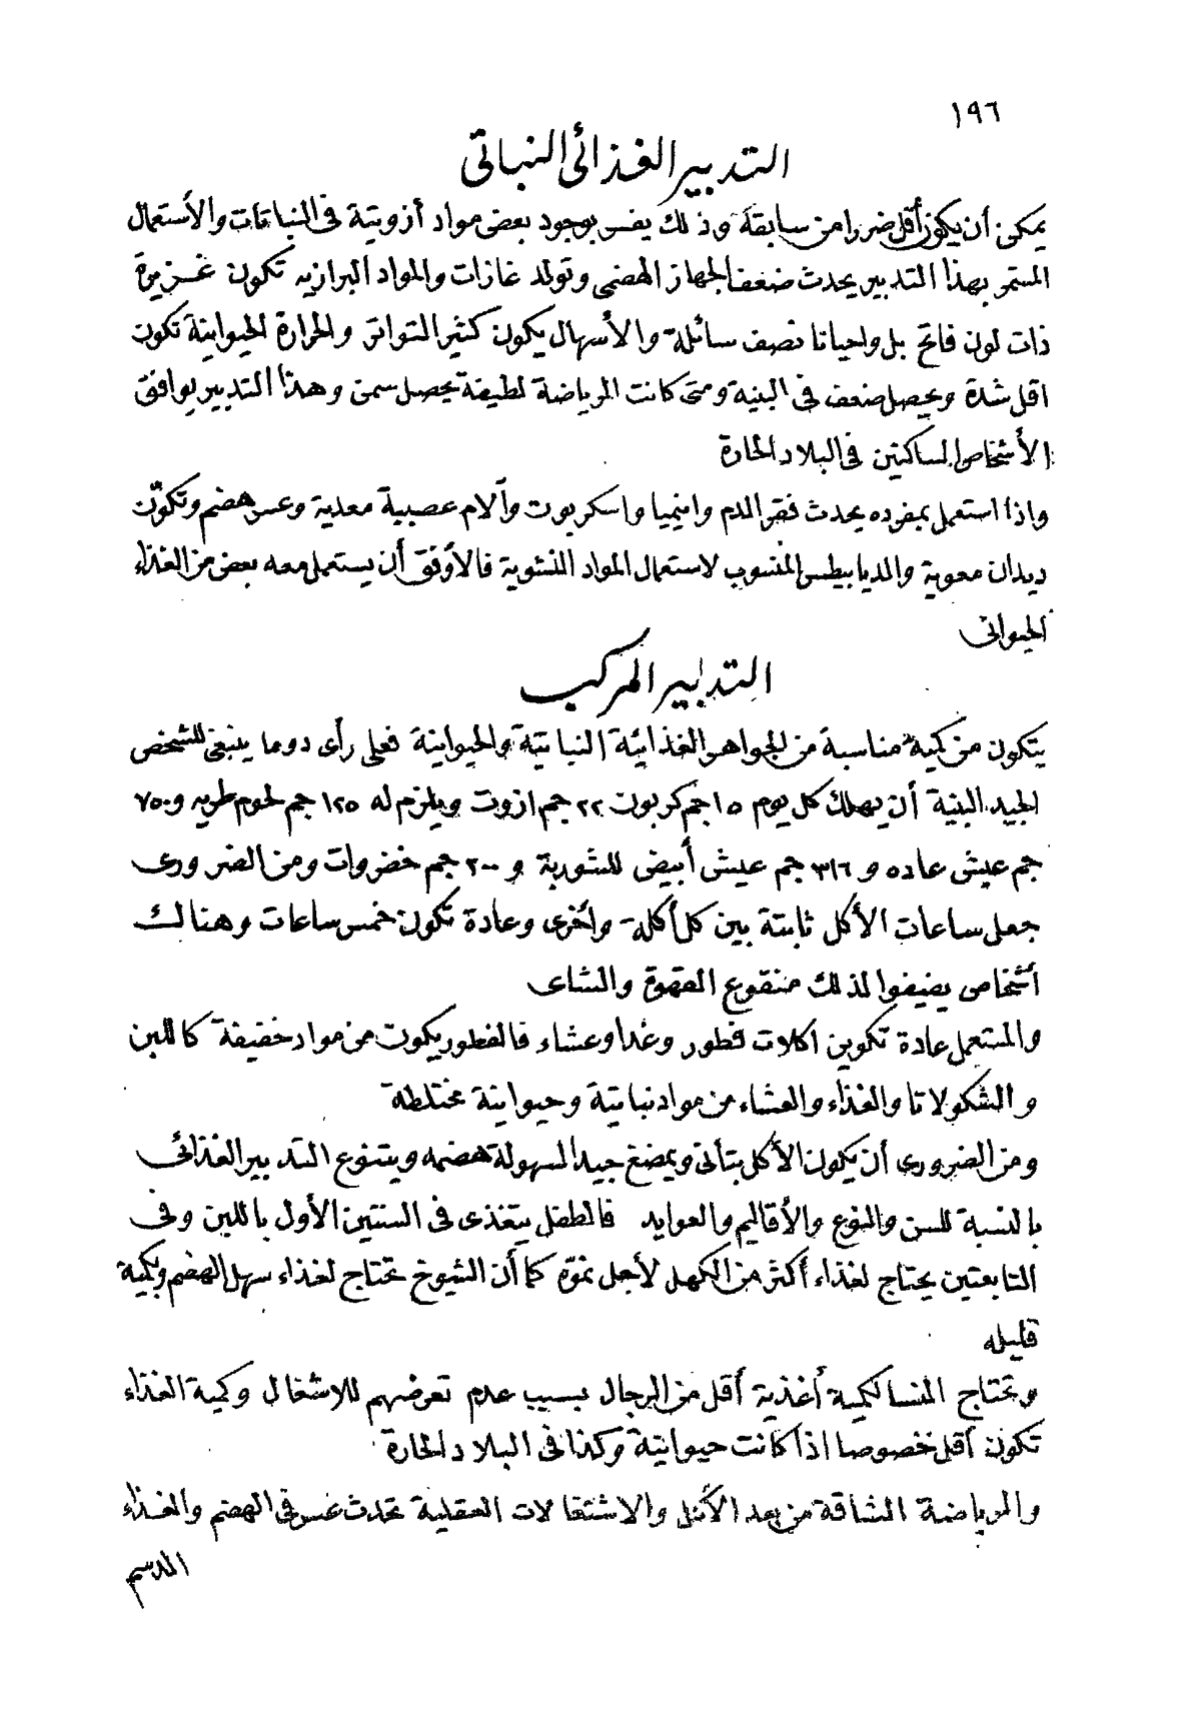 ١٩٦
التدبير الغذائى النباتى
يمكن أن يكون أقل ضررا من سابقة وذلك يفسر بوجود بعض مواد أزوتية فى النباتات والأستعمال
المستمر بهذا التدبير يحدث ضعف الجهاز الهضمى وتولد غازات والمواد البرازيه تكون غزيرة
ذات لون فاتح بل واحيانا نصف سائلة والأسهال يكون كثير التواتر والحرارة الحيوانية تكون
اقل شدة ويحصل ضعف فى البنية ومتى كانت الرياضة لطيفة يحصل سمن وهذا التدبير يوافق
الأشخاص الساكنين فى البلاد الحارة
واذا استعمل بمفرده يحدث فقر الدم وانيميا واسكربوت وآلام عصبية معدية وعسر هضم وتكوّن
ديدان معوية والديابيطس المنسوب لاستعمال المواد النشوية فالأوفق أن يستعمل معه بعض من الغذاء
الحيوانى
التدبير المركب
يتكون من كمية مناسبة من الجواهر الغذائية النباتية والحيوانية فعلى رأى دوما ينبغى للشخص
الجيد البنية أن يهلك كل يوم ١٥ جم كربون ٢٢ جم ازوت ويلزم له ١٢٥ جم لحوم طريه و ٧٥٠
جم عيش عاده و ٣١٦ جم عيش أبيض للشوربة و ٢٠٠ جم خضروات ومن الضرورى
جعل ساعات الأكل ثابتة بين كل أكلة وأخرى وعادة تكون خمس ساعات وهنالك
أشخاص يضيفوا لذلك منقوع القهوة والشاى
والمستعمل عادة تكوين اكلات فطور وغدا وعشاء فالفطور يكون من مواد خفيفة كاللبن
والشكولاتا والغذاء والعشاء من مواد نباتية وحيوانية مختلطة
ومن الضرورى أن يكون الأكل بتأنى ويمضغ جيدا لسهولة هضمه ويتنوع التدبير الغذائى
بالنسبة للسن والنوع والأقاليم والعوايد فالطفل يتغذى فى السنتين الأول باللبن وفى
التابعتين يحتاج لغذاء أكثر من الكهل لأجل نموّه كما أن الشيوخ تحتاج لغذاء سهل الهضم وبكمية
قليله
وتحتاج النسا لكمية أغذية أقل من الرجال بسبب عدم تعرضهم للاشغال وكمية الغذاء
تكون أقل خصوصا اذا كانت حيوانية وكذا فى البلاد الحارة
والرياضة الشاقة من بعد الأكل والاشتغالات العقلية تحدث عسر فى الهضم والغذاء
الدسم